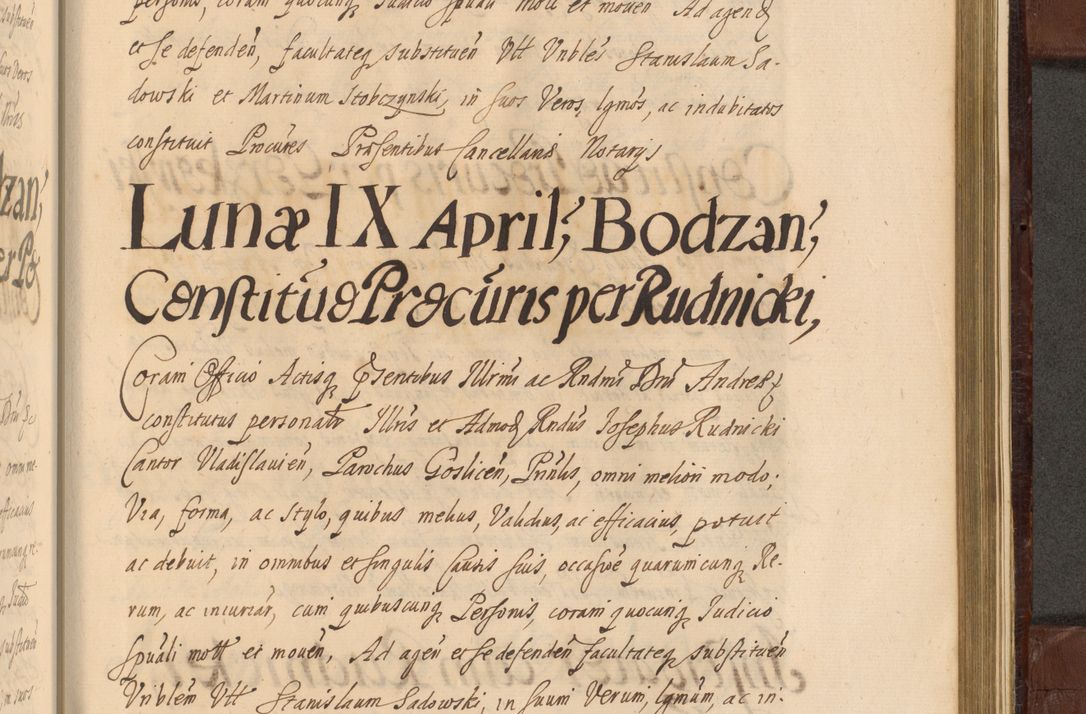 personis, coram quocunq Iudicio spuali mott et mouen Ad agend
et se defenden, facultateq substituen Vtt Vnbles Stanislaum Sa-
dowski et Martinum Stobczynski, in suos Veros, lgmos, ac indubitatos
constituit Procures Præsentibus Cancellariæ Notarijs
Lunæ IX April; Bodzan;
Constitũo Procuris per Rudnicki,
Coram Officio Actisq pśentibus Illrmi ac Rndmi Dni Andreæ
constitutus personatr Illris et Admod Rndus Iosephus Rudnicki
Cantor Vladislauien, Parochus Goslicen, Prinlis, omni meliori modo,
Via, forma, ac Stylo, quibus melius, Validius, ac efficacius, potuit
ac debuit, in omnibus et singulis Causis suis, occasioe quarumcunq Re-
rum, ac iniuriar, cum quibuscunq Personis, coram quocunq Iudicio
spuali mott et mouen, Ad agen et se defenden facultateq substituen
Vnblem Vtt Stanislaum Sadowski, in suum Verum, lgmum, ac in-